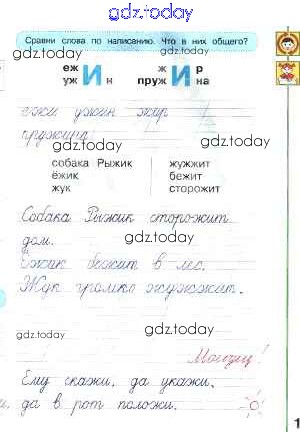 gdz.today
Сравни слова по написанию. Что в них общего?
gdz.today
еж ж р
уж И н пруж И на
ежи ужин жир
gdz.today
пружина
собака Рыжик жужжит
ёжик бежит
жук сторожит
gdz.today
Собака Рыжик сторожит
дом. gdz.today
Ёжик бежит в лес.
Жук громко жужжит.
gdz.today
gdz.today
Молодец!
Ему скажи, да укажи,
да в рот положи.
gdz.today
1